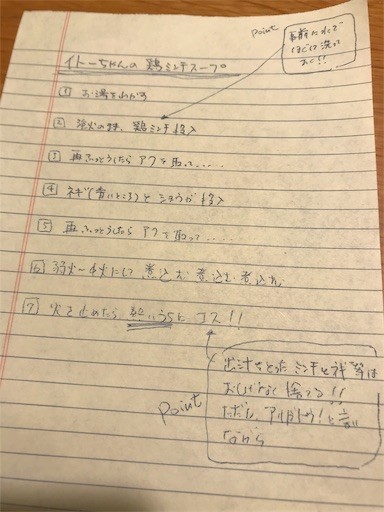 Point
事前に水で
ほぐして洗い
おく!!
イトーちゃんの 鶏ミンチスープ
① お湯をわかす
② 強火の時、鶏ミンチ投入
③ 再ふっとうしたら アクを取って.....
④ ネギ(青いところ)と ショウガ 投入
⑤ 再ふっとうしたら アクを取って.....
⑥ 弱火〜中火にして 煮込む 煮込む 煮込む
⑦ 火を止めたら 熱いうちに コス!!
Point
出汁をとった ミンチと
おしげなく 捨てる!!
ただし、
ながら